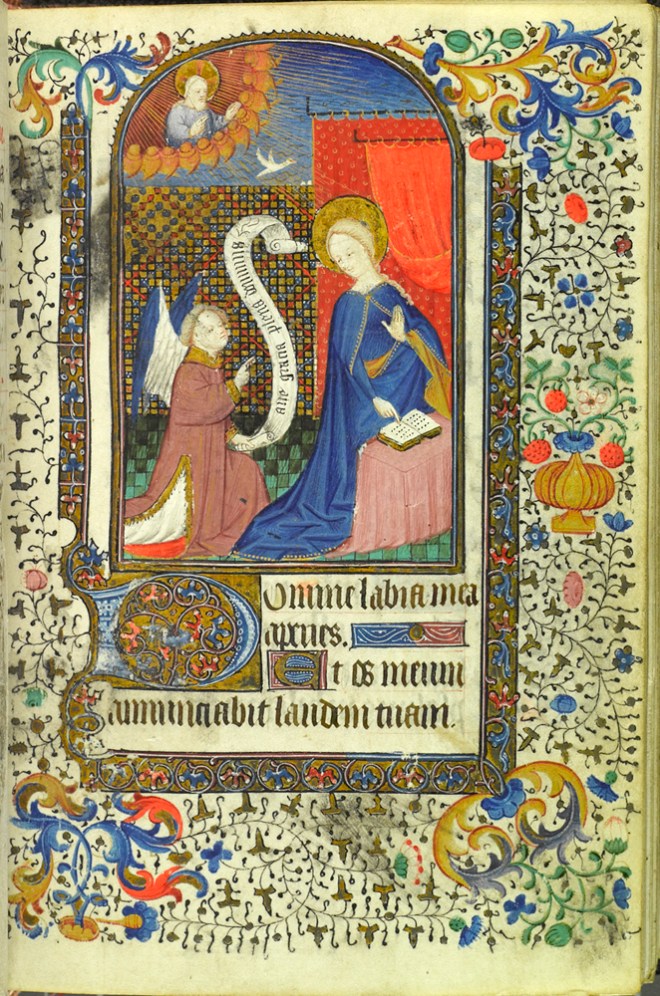 aue gracia plena dominus
Domine labia mea
aperies.
Et os meum
annunciabit laudem tuam.